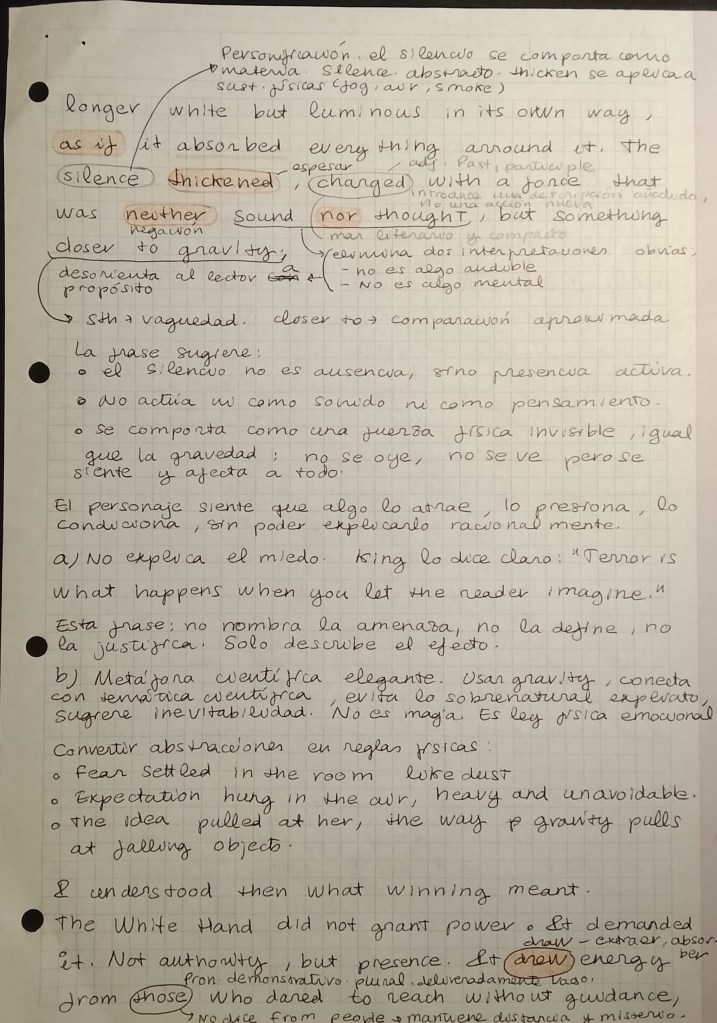 Personificación. el silencio se comporta como
materia. Silence. abstracto. thicken se aplica a
sust. físicas (fog, air, smoke)
longer white but luminous in its own way,
as if it absorbed everything arround it. The
espesar
adj. Past, participle
silence thickened, charged with a force that
introduce una descripción añadida,
no una acción nueva
was neither sound nor thought, but something
negación
mas literario y compacto
closer to gravity;
elimina dos interpretaciones obvias;
desorienta al lector a
- no es algo audible
propósito
- No es algo mental
sth → vaguedad. closer to → comparación aproximada
La frase sugiere:
• el silencio no es ausencia, sino presencia activa.
• No actúa ni como sonido ni como pensamiento.
• se comporta como una fuerza física invisible, igual
que la gravedad: no se oye, no se ve pero se
siente y afecta a todo.
El personaje siente que algo lo atrae, lo presiona, lo
condiciona, sin poder explicarlo racionalmente.
a) No explica el miedo. King lo dice claro: "Terror is
what happens when you let the reader imagine."
Esta frase: no nombra la amenaza, no la define, no
la justifica. Solo describe el efecto.
b) Metáfora científica elegante. Usar gravity, conecta
con temática científica, evita lo sobrenatural explícito,
sugiere inevitabilidad. No es magia. Es ley física emocional
Convertir abstracciones en reglas físicas:
• Fear settled in the room like dust
• Expectation hung in the air, heavy and unavoidable.
• The idea pulled at her, the way gravity pulls
at falling objects.
I understood then what winning meant.
The White Hand did not grant power. It demanded
draw - extraer, absor-
ber
it. Not authority, but presence. It drew energy
Pron. demonstrativo plural. deliveradamente vago.
from those who dared to reach without guidance,
No dice from people → mantiene distancia y misterio.